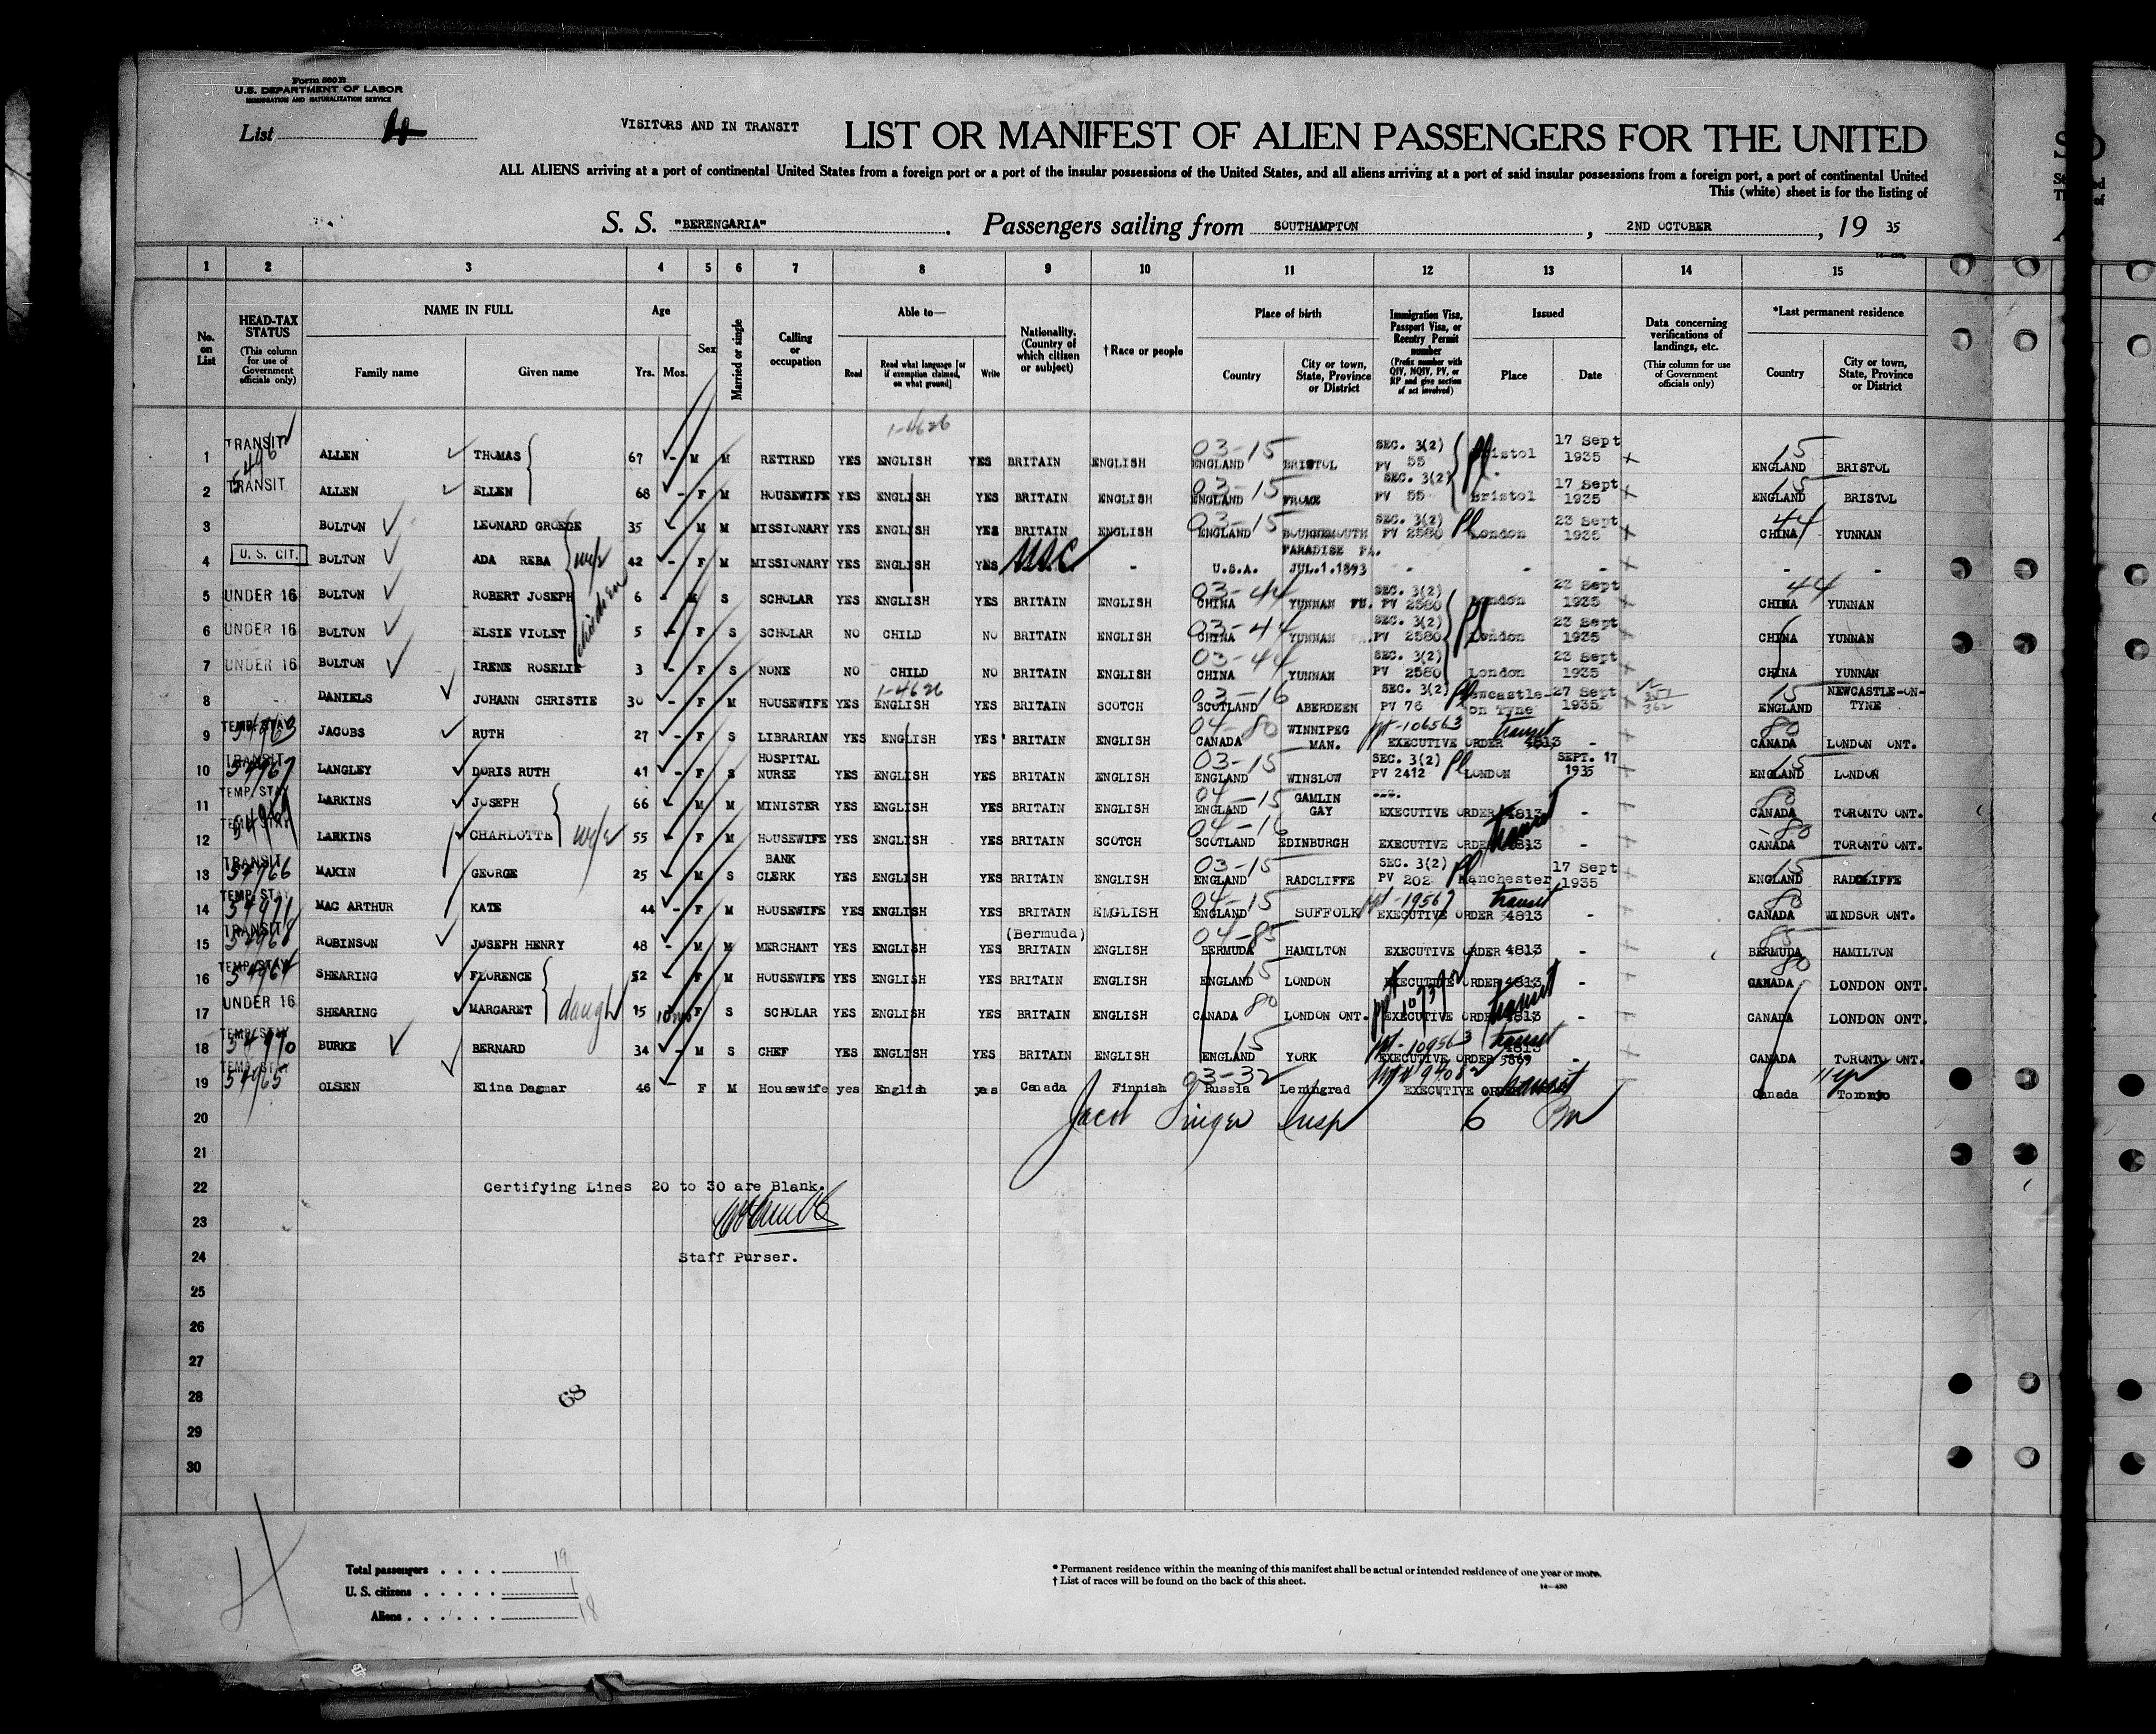 Form 500 B
U.S. DEPARTMENT OF LABOR
IMMIGRATION AND NATURALIZATION SERVICE
List 4
VISITORS AND IN TRANSIT
LIST OR MANIFEST OF ALIEN PASSENGERS FOR THE UNITED
ALL ALIENS arriving at a port of continental United States from a foreign port or a port of the insular possessions of the United States, and all aliens arriving at a port of said insular possessions from a foreign port, a port of continental United
This (white) sheet is for the listing of
S. S. "BERENGARIA". Passengers sailing from SOUTHAMPTON, 2ND OCTOBER, 19 35
1 2 3 4 5 6 7 8 9 10 11 12 13 14 15
No. on List
HEAD-TAX STATUS (This column for use of Government officials only)
NAME IN FULL
Family name Given name
Age
Yrs. Mos.
Sex
Married or single
Calling or occupation
Able to—
Read Read what language [or if exemption claimed, on what ground] Write
Nationality. (Country of which citizen or subject)
† Race or people
Place of birth
Country City or town, State, Province or District
Immigration Visa, Passport Visa, or Reentry Permit number (Prefix number with QIV, NQIV, PV, or RP and give section of act involved)
Issued
Place Date
Data concerning verifications of landings, etc. (This column for use of Government officials only)
*Last permanent residence
Country City or town, State, Province or District
1-4626
1 TRANSIT ALLEN THOMAS 67 - M M RETIRED YES ENGLISH YES BRITAIN ENGLISH 03-15 ENGLAND BRISTOL SEC. 3(2) PV 55 Bristol 17 Sept 1935 15 ENGLAND BRISTOL
2 TRANSIT ALLEN ELLEN 68 - F M HOUSEWIFE YES ENGLISH YES BRITAIN ENGLISH 03-15 ENGLAND FROME SEC. 3(2) PV 55 Bristol 17 Sept 1935 15 ENGLAND BRISTOL
3 BOLTON LEONARD GROEGE 35 M M MISSIONARY YES ENGLISH YES BRITAIN ENGLISH 03-15 ENGLAND BOURNEMOUTH SEC. 3(2) PV 2580 London 23 Sept 1935 44 CHINA YUNNAN
4 U. S. CIT. BOLTON ADA REBA wife 42 - F M MISSIONARY YES ENGLISH YES USC - U.S.A. PARADISE PA. JUL.1.1893 - - - - -
5 UNDER 16 BOLTON ROBERT JOSEPH children 6 - M S SCHOLAR YES ENGLISH YES BRITAIN ENGLISH 03-44 CHINA YUNNAN SEC. 3(2) PV 2580 London 23 Sept 1935 44 CHINA YUNNAN
6 UNDER 16 BOLTON ELSIE VIOLET 5 - F S SCHOLAR NO CHILD NO BRITAIN ENGLISH 03-44 CHINA YUNNAN SEC. 3(2) PV 2580 London 23 Sept 1935 CHINA YUNNAN
7 UNDER 16 BOLTON IRENE ROSELIE 3 - F S NONE NO CHILD NO BRITAIN ENGLISH 03-44 CHINA YUNNAN SEC. 3(2) PV 2580 London 23 Sept 1935 CHINA YUNNAN
8 DANIELS JOHANN CHRISTIE 30 - F M HOUSEWIFE YES 1-4626 ENGLISH YES BRITAIN SCOTCH 03-16 SCOTLAND ABERDEEN SEC. 3(2) PV 76 Newcastle-on Tyne 27 Sept 1935 15 ENGLAND NEWCASTLE-ON-TYNE
9 TEMP. STAY JACOBS RUTH 27 - F S LIBRARIAN YES ENGLISH YES BRITAIN ENGLISH 04-80 CANADA WINNIPEG MAN. EXECUTIVE ORDER 4813 transit - 80 CANADA LONDON ONT.
10 TRANSIT 54967 LANGLEY DORIS RUTH 41 - F S HOSPITAL NURSE YES ENGLISH YES BRITAIN ENGLISH 03-15 ENGLAND WINSLOW SEC. 3(2) PV 2412 LONDON SEPT. 17 1935 15 ENGLAND LONDON
11 TEMP. STAY LARKINS JOSEPH 66 M M MINISTER YES ENGLISH YES BRITAIN ENGLISH 04-15 ENGLAND GAMLIN GAY EXECUTIVE ORDER 4813 - 80 CANADA TORONTO ONT.
12 TEMP. STAY LARKINS CHARLOTTE wife 55 F M HOUSEWIFE YES ENGLISH YES BRITAIN SCOTCH 04-16 SCOTLAND EDINBURGH EXECUTIVE ORDER 4813 transit - 80 CANADA TORONTO ONT.
13 TRANSIT 54966 MAKIN GEORGE 25 M S BANK CLERK YES ENGLISH YES BRITAIN ENGLISH 03-15 ENGLAND RADCLIFFE SEC. 3(2) PV 202 Manchester 17 Sept 1935 15 ENGLAND RADCLIFFE
14 TEMP. STAY 54971 MAC ARTHUR KATE 44 - F M HOUSEWIFE YES ENGLISH YES BRITAIN ENGLISH 04-15 ENGLAND SUFFOLK EXECUTIVE ORDER 4813 transit - 80 CANADA WINDSOR ONT.
15 TRANSIT 54968 ROBINSON JOSEPH HENRY 48 - M M MERCHANT YES ENGLISH YES (Bermuda) BRITAIN ENGLISH 04-85 BERMUDA HAMILTON EXECUTIVE ORDER 4813 - 85 BERMUDA HAMILTON
16 TEMP. STAY 54964 SHEARING FLORENCE 52 F M HOUSEWIFE YES ENGLISH YES BRITAIN ENGLISH 15 ENGLAND LONDON EXECUTIVE ORDER 4813 - 80 CANADA LONDON ONT.
17 UNDER 16 SHEARING MARGARET daugh 15 10 mo F S SCHOLAR YES ENGLISH YES BRITAIN ENGLISH 80 CANADA LONDON ONT. EXECUTIVE ORDER 4813 transit - CANADA LONDON ONT.
18 TEMP. STAY 54970 BURKE BERNARD 34 - M S CHEF YES ENGLISH YES BRITAIN ENGLISH 15 ENGLAND YORK EXECUTIVE ORDER 4813 5869 transit - CANADA TORONTO ONT.
19 TEMP. STAY 54965 OLSEN Elina Dagmar 46 - F M Housewife yes English yes Canada Finnish 03-32 Russia Leningrad EXECUTIVE ORDER transit Canada Toronto
20 Jacob Singer Insp 6
21
22 Certifying Lines 20 to 30 are Blank.
23
24 Staff Purser.
25
26
27
28 68
29
30
Total passengers . . . . 19
U. S. citizens . . . . . 1
Aliens . . . . . . 18
* Permanent residence within the meaning of this manifest shall be actual or intended residence of one year or more.
† List of races will be found on the back of this sheet.